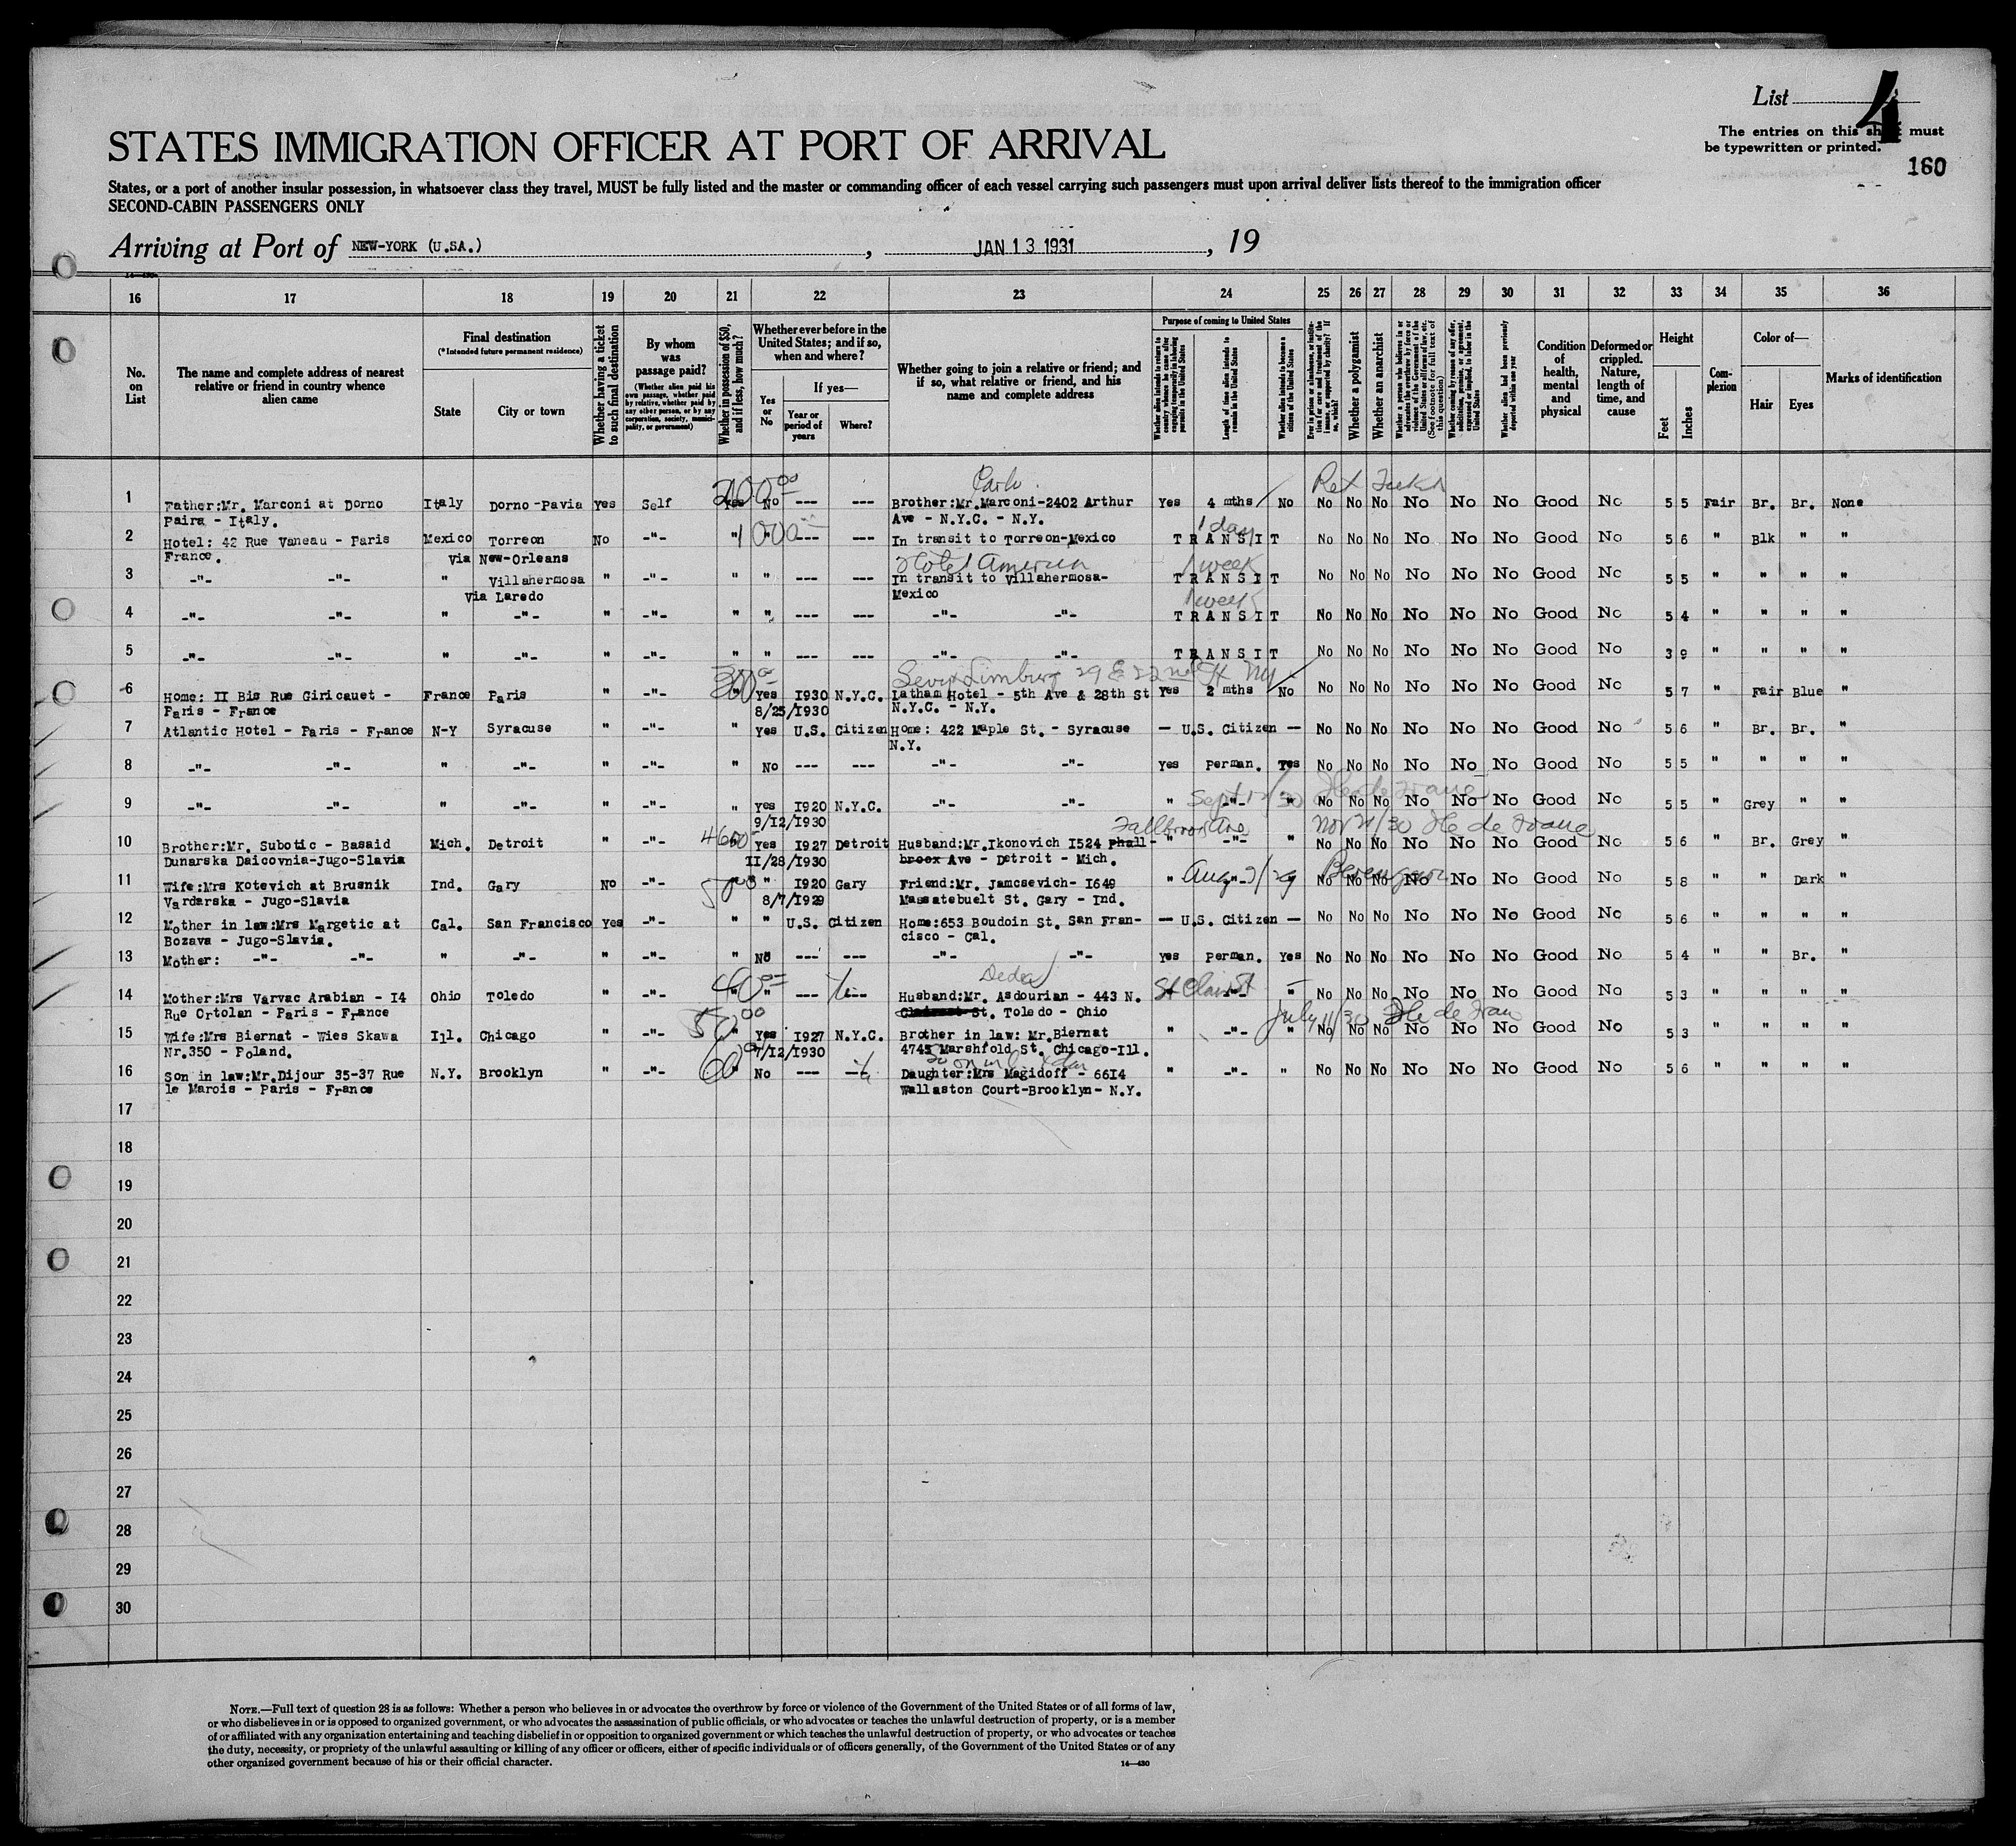 List 4
The entries on this sheet must
be typewritten or printed.
160
STATES IMMIGRATION OFFICER AT PORT OF ARRIVAL
States, or a port of another insular possession, in whatsoever class they travel, MUST be fully listed and the master or commanding officer of each vessel carrying such passengers must upon arrival deliver lists thereof to the immigration officer
SECOND-CABIN PASSENGERS ONLY
Arriving at Port of NEW-YORK (U.SA.) , JAN 13 1931 , 19
16 17 18 19 20 21 22 23 24 25 26 27 28 29 30 31 32 33 34 35 36
No. on List
The name and complete address of nearest relative or friend in country whence alien came
Final destination
(*Intended future permanent residence)
State City or town
Whether having a ticket to such final destination
By whom was passage paid?
(Whether alien paid his own passage, whether paid by relative, whether paid by any other person, or by any corporation, society, municipality, or government)
Whether in possession of $50, and if less, how much?
Whether ever before in the United States; and if so, when and where?
Yes or No
If yes—
Year or period of years Where?
Whether going to join a relative or friend; and if so, what relative or friend, and his name and complete address
Purpose of coming to United States
Whether alien intends to return to country whence he came after engaging temporarily in laboring pursuits in the United States
Length of time alien intends to remain in the United States
Whether alien intends to become a citizen of the United States
Ever in prison or almshouse, or institution for care and treatment of the insane, or supported by charity? If so, which?
Whether a polygamist
Whether an anarchist
Whether a person who believes in or advocates the overthrow by force or violence of the Government of the United States or all forms of law, etc. (See footnote for full text of this question)
Whether coming by reason of any offer, solicitation, promise, or agreement, expressed or implied, to labor in the United States
Whether alien had been previously deported within one year
Condition of health, mental and physical
Deformed or crippled. Nature, length of time, and cause
Height
Feet Inches
Complexion
Color of—
Hair Eyes
Marks of identification
200.00 Carlo
1 Father:Mr. Marconi at Dorno Italy Dorno-Pavia Yes Self Yes No --- --- Brother:Mr.Marconi-2402 Arthur Yes 4 mths No No No No No No No Good No 5 5 Fair Br. Br. None
Paira - Italy. Ave - N.Y.C. - N.Y.
1000 1 day
2 Hotel: 42 Rue Vaneau - Paris Mexico Torreon No -"- " " --- --- In transit to Torreon-Mexico TRANSIT No No No No No No Good No 5 6 " Blk " "
France. Via New-Orleans
Hotel America 1 week
3 -"- -"- " Villahermosa " -"- " " --- --- In transit to Villahermosa- TRANSIT No No No No No No Good No 5 5 " " " "
Via Laredo Mexico
1 week
4 -"- -"- " -"- " -"- " " --- --- -"- -"- TRANSIT No No No No No No Good No 5 4 " " " "
5 -"- -"- " -"- " -"- " " --- --- -"- -"- TRANSIT No No No No No No Good No 3 9 " " " "
Limburg 29 E 22nd St NY
6 Home: II Bis Rue Giricauet - France Paris " -"- " Yes 1930 N.Y.C. Latham Hotel - 5th Ave & 28th St Yes 2 mths No No No No No No No Good No 5 7 " Fair Blue "
Paris - France 8/25/1930 N.Y.C. - N.Y.
7 Atlantic Hotel - Paris - France N-Y Syracuse " -"- " Yes U.S. Citizen Home: 422 Maple St. - Syracuse — U.S. Citizen — No No No No No No Good No 5 6 " Br. Br. "
N.Y.
8 -"- -"- " -"- " -"- " No --- --- -"- -"- Yes Perman. Yes No No No No No No Good No 5 5 " " " "
Sept 12/30 Ile de France
9 -"- -"- " -"- " -"- " Yes 1920 N.Y.C. -"- -"- " -"- " No No No No No No Good No 5 5 " Grey " "
9/12/1930
Nov 28/30 Ile de France
10 Brother:Mr. Subotic - Basaid Mich. Detroit " -"- " Yes 1927 Detroit Husband:Mr.Ikonovich 1524 Phall- " -"- " No No No No No No Good No 5 6 " Br. Grey "
Dunarska Daicovnia-Jugo-Slavia II/28/1930 broox Ave - Detroit - Mich.
Aug 7/29 Berengaria
11 Wife:Mrs Kotevich at Brusnik Ind. Gary No -"- " " 1920 Gary Friend:Mr. Jamcsevich- I649 " -"- " No No No No No No Good No 5 8 " " Dark "
Vardarska - Jugo-Slavia 8/7/1929 Massatebuelt St. Gary - Ind.
12 Mother in law:Mrs Margetic at Cal. San Francisco Yes -"- " " U.S. Citizen Home:653 Boudoin St. San Fran- — U.S. Citizen — No No No No No No Good No 5 6 " " " "
Bozava - Jugo-Slavia. cisco - Cal.
13 Mother: -"- -"- " -"- " -"- " No --- --- -"- -"- Yes Perman. Yes No No No No No No Good No 5 4 " " Br. "
40.00 St Clair St
14 Mother:Mrs Varvac Arabian - I4 Ohio Toledo " -"- " " --- --- Husband:Mr. Asdourian - 443 N. " -"- " No No No No No No Good No 5 3 " " " "
Rue Ortolan - Paris - France St. Toledo - Ohio
50.00 July 11/30 Ile de Fran
15 Wife:Mrs Biernat - Wies Skawa Ill. Chicago " -"- " Yes 1927 N.Y.C. Brother in law: Mr.Biernat " -"- " No No No No No No Good No 5 3 " " " "
Nr.350 - Poland. 7/12/1930 4745 Marshfold St. Chicago-Ill.
60 Son in l
16 Son in law:Mr.Dijour 35-37 Rue N.Y. Brooklyn " -"- " No --- --- Daughter:Mrs Magidoff - 66I4 " -"- " No No No No No No Good No 5 6 " " " "
le Marois - Paris - France Wallaston Court-Brooklyn- N.Y.
17
18
19
20
21
22
23
24
25
26
27
28
29
30
NOTE.—Full text of question 28 is as follows: Whether a person who believes in or advocates the overthrow by force or violence of the Government of the United States or of all forms of law,
or who disbelieves in or is opposed to organized government, or who advocates the assassination of public officials, or who advocates or teaches the unlawful destruction of property, or is a member
of or affiliated with any organization entertaining and teaching disbelief in or opposition to organized government or which teaches the unlawful destruction of property, or who advocates or teaches
the duty, necessity, or propriety of the unlawful assaulting or killing of any officer or officers, either of specific individuals or of officers generally, of the Government of the United States or of any
other organized government because of his or their official character. 14—430